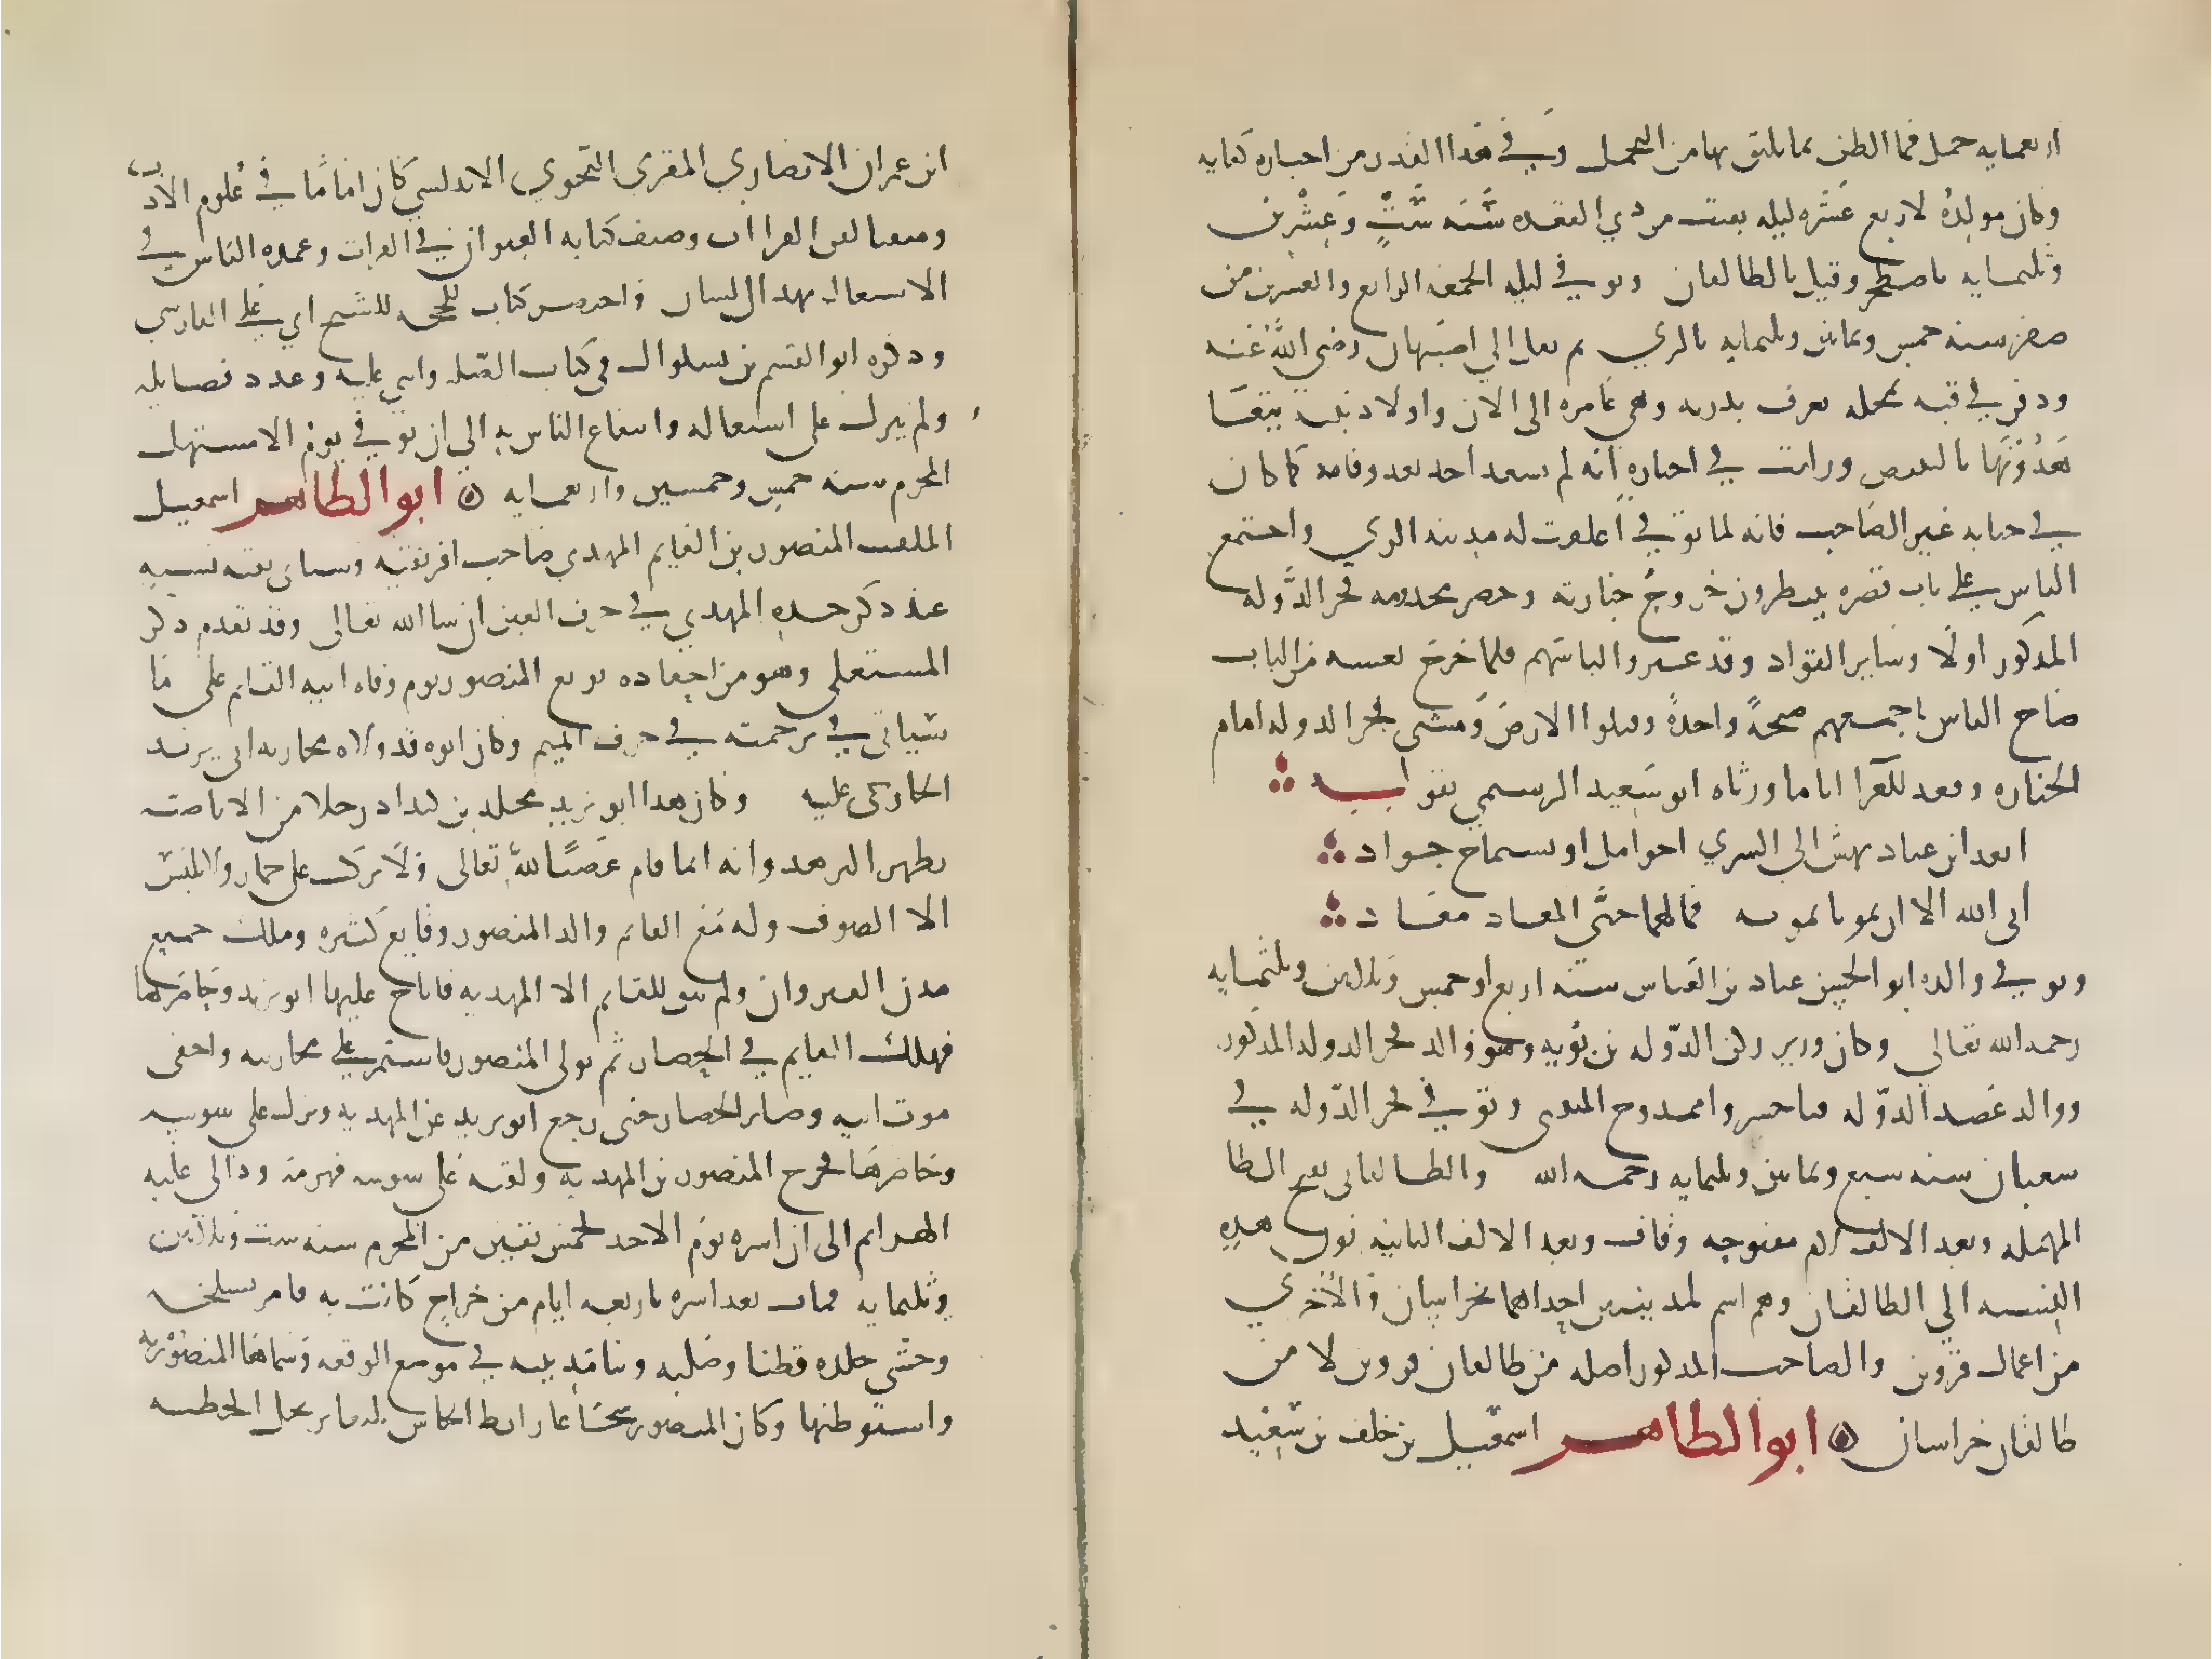 اربعمايه حمل فما الظن بما يليق بها من التجمل وفي هذا القدر من اخباره كفايه
وكان مولده لاربع عشره ليله بقيت من ذي القعده سنه ست وعشرين
وثلثمايه باصطخر وقيل بالطالقان وتوفي ليله الجمعه الرابع والعشرين من
صفر سنه خمس وثمانين وثلثمايه بالري ثم نقل الي اصبهان رضي الله عنه
ودفن في قبه بمحله تعرف بدريه وهي عامره الى الان واولاد بنته
يتعاهدونها بالتبييض ورايت في اخباره انه لم يسعد احد بعد وفاته كما كان
في حياته غير الصاحب فانه لما توفي اغلقت له مدينه الري واجتمع
الناس على باب قصره ينتظرون خروج جنازته وحضر مخدومه فخر الدوله
المذكور اولا وساير القواد وقد غيروا لباسهم فلما خرج نعشه من الباب
صاح الناس باجمعهم صيحة واحدة وقبلوا الارض ومشى فخر الدوله امام
الجنازه وقعد للعزا اياما ورثاه ابو سعيد الرستمي بقوله
ابعد ابن عباد يهش الى السري اخو امل او يستماح جواد
ابى الله الا ان يموتا بموته فما لهما حتى المعاد معاد
وتوفي والده ابو الحسن عباد بن العباس سنه اربع او خمس وثلاثين وثلثمايه
رحمه الله تعالى وكان وزير ركن الدوله بن بويه وهو والد فخر الدوله المذكور
ووالد عضد الدوله فناخسرو ممدوح المتنبي وتوفي فخر الدوله في
شعبان سنه سبع وثمانين وثلثمايه رحمه الله والطالقاني بفتح الطا
المهمله وبعد الالف لام مفتوحه وقاف وبعد الالف الثانيه نون هذه
النسبه الي الطالقان وهم اسم لمدينتين احداهما بخراسان والاخري
من اعمال قزوين والصاحب المذكور اصله من طالقان قزوين لا من
طالقان خراسان ابو الطاهر اسمعيل بن خلف بن سعيد
ابن عمران الانصاري المقري النحوي الاندلسي كان اماما في علوم الاداب
ومتقنا لفن القراات وصنف كتابه العنوان في القرات وعمده الناس في
الاشتغال بهذا الشان واختصر كتاب الحجه للشيخ ابي علي الفارسي
وذكره ابو القسم بن بشكوال في كتاب الصله واثنى عليه وعدد فضايله
ولم يزل على اشتغاله وانتفاع الناس به الى ان توفي يوم الاحد مستهل
المحرم سنه خمس وخمسين واربعمايه ابو الطاهر اسمعيل
الملقب المنصور بن القايم المهدي صاحب افريقيه وسياتي بقيه نسبه
عند ذكر جده المهدي في حرف العين ان شا الله تعالى وقد تقدم ذكر
المستعلي وهو من احفاده بويع المنصور يوم وفاه ابيه القايم على ما
سياتي في ترجمته في حرف الميم وكان ابوه قد ولاه محاربه ابي يزيد
الخارجي عليه وكان هذا ابو يزيد مخلد بن كيداد رجلا من الاباضيه
يظهر التزهد وانه انما قام غضبا لله تعالى ولا يركب على حمار ولا يلبس
الا الصوف وله مع القايم والد المنصور وقايع كثيره وملك جميع
مدن القيروان ولم يبق للقايم الا المهديه فاناخ عليها ابو يزيد وحاصرها
فهلك القايم في الحصار ثم تولى المنصور فاستمر على محاربته واخفى
موت ابيه وصابر الحصار حتى رجع ابو يزيد عن المهديه ونزل على سوسه
وحاصرها فخرج المنصور من المهديه ولقيه على سوسه فهزمه ووالى عليه
الهزايم الى ان اسره يوم الاحد لخمس بقين من المحرم سنه ست وثلاثين
وثلثمايه فمات بعد اسره باربعه ايام من جراح كانت به فامر بسلخه
وحشى جلده قطنا وصلبه وبنا مدينه في موضع الوقعه وسماها المنصوريه
واستوطنها وكان المنصور شجاعا رابط الجاش بليغا يرتجل الخطبه